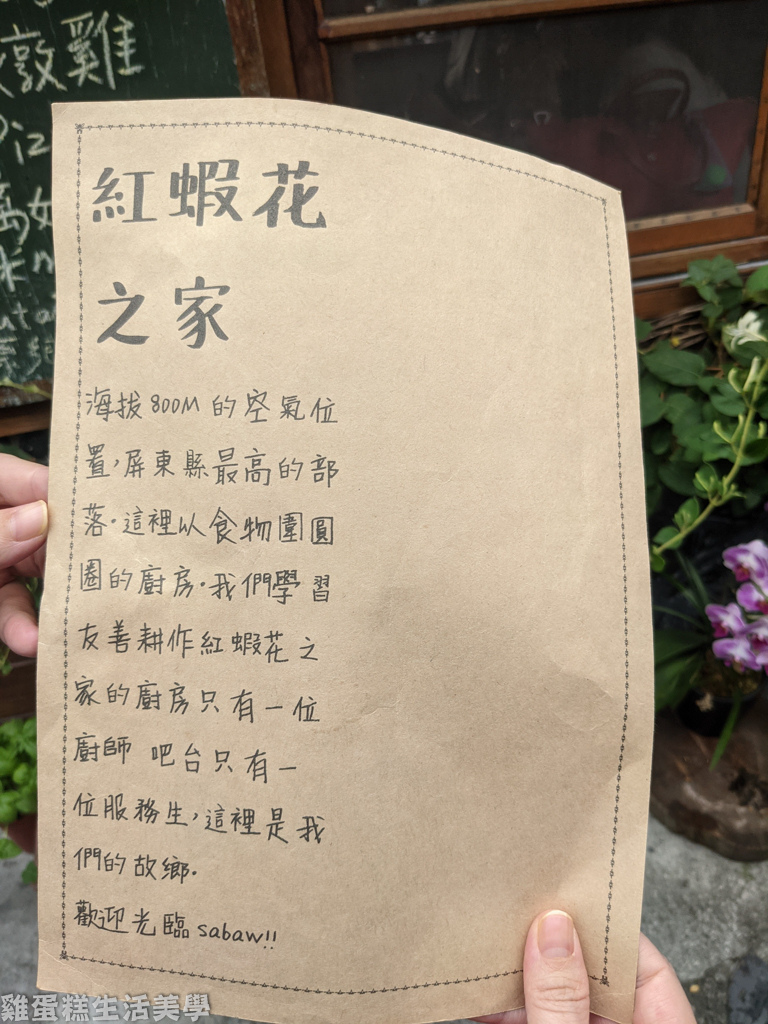 燉雞
紅蝦花
之家
海拔800M的空氣位
置,屏東縣最高的部
落.這裡以食物圍圓
圈的廚房.我們學習
友善耕作紅蝦花之
家的廚房只有一位
廚師 吧台只有一
位服務生,這裡是我
們的故鄉.
歡迎光臨sabaw!!
雞蛋糕生活美學